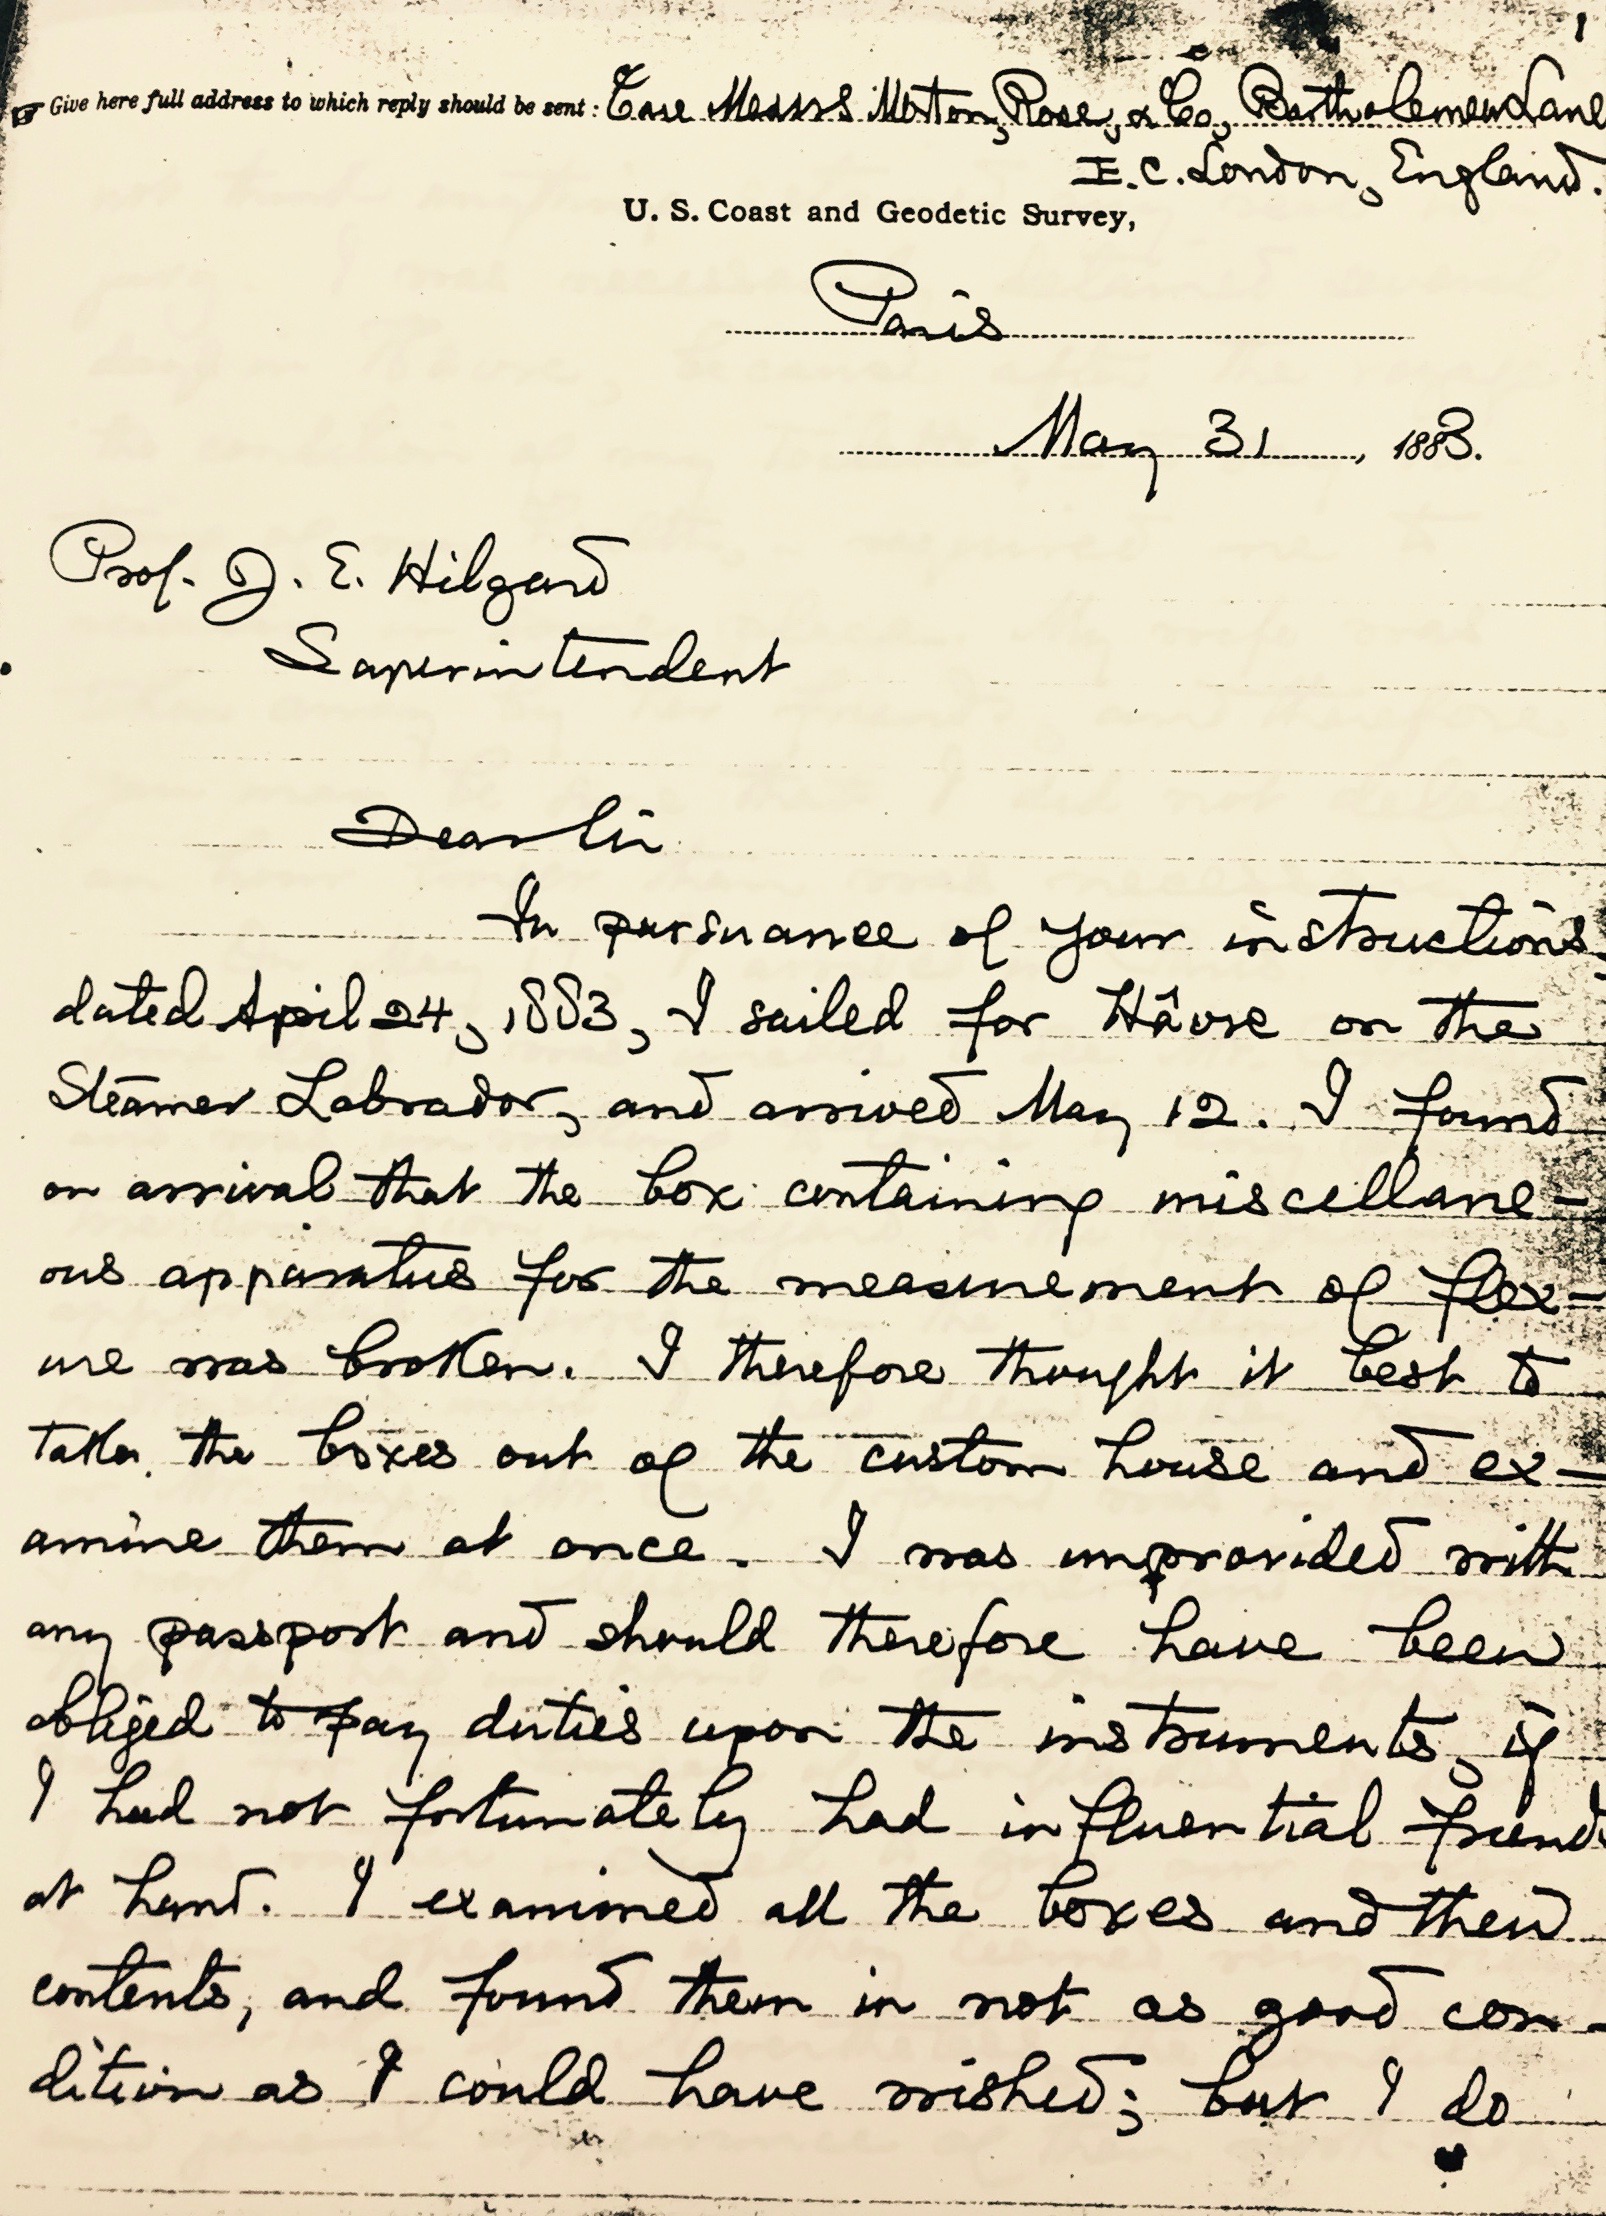 1
☞ Give here full address to which reply should be sent: Care Messrs Morton, Rose, & Co, Bartholemew Lane
E.C. London, England.
U. S. Coast and Geodetic Survey,
Paris
May 31, 1883.
Prof. J. E. Hilgard
Superintendent
Dear Sir
In pursuance of your instructions,
dated April 24, 1883, I sailed for Hâvre on the
Steamer Labrador, and arrived May 12. I found
on arrival that the box containing miscellane-
ous apparatus for the measurement of flex-
ure was broken. I therefore thought it best to
take the boxes out of the custom house and ex-
amine them at once. I was unprovided with
any passport and should therefore have been
obliged to pay duties upon the instruments, if
I had not fortunately had influential friends
at hand. I examined all the boxes and their
contents, and found them in not as good con-
dition as I could have wished; but I do